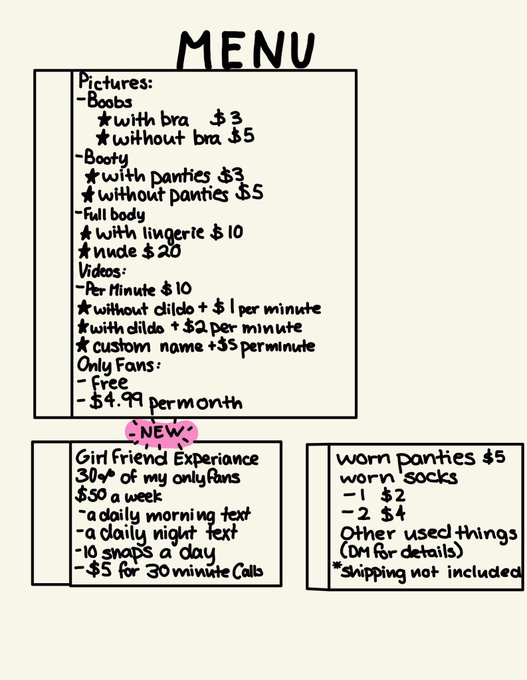 MENU
Pictures:
-Boobs
★with bra $3
★without bra $5
-Booty
★with panties $3
★without panties $5
-Full body
★with lingerie $10
★nude $20
Videos:
-Per Minute $10
★without dildo + $1 per minute
★with dildo + $2 per minute
★custom name +$5 perminute
Only Fans:
- Free
- $4.99 per month
NEW
Girl Friend Experiance
30% of my onlyfans
$50 a week
-a daily morning text
-a daily night text
-10 snaps a day
-$5 for 30 minute Calls
worn panties $5
worn socks
-1 $2
-2 $4
Other used things
(DM for details)
*shipping not included